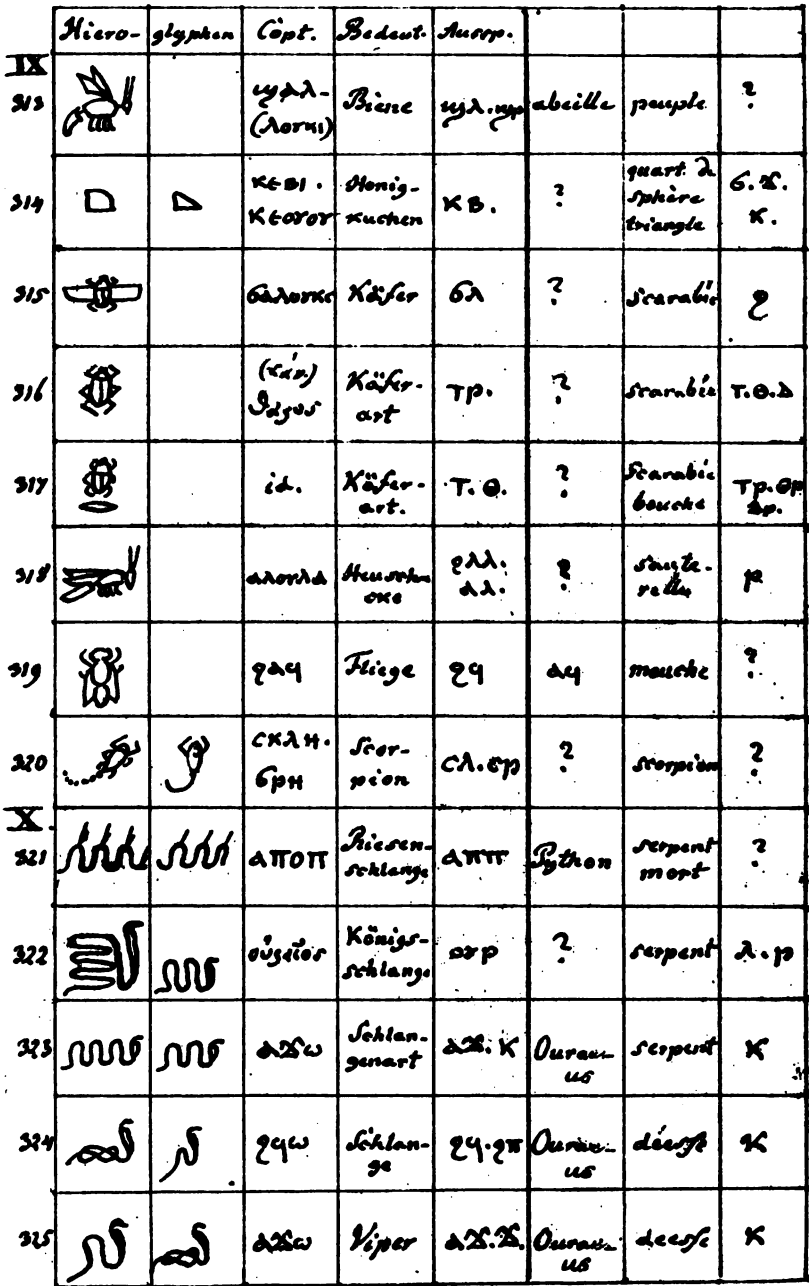 Hiero- glyphen Copt. Bedeut. Aussp.
IX
313 ϣϥⲗ- (ⲗⲟⲩⲕⲓ) Biene abeille peuple ?
314 ⲕⲉⲃⲓ. ⲕⲉⲟⲩⲟⲩ Honig-kuchen ⲕⲃ. ? quart. de sphère triangle ϭ. ϫ. ⲕ.
315 ϭⲁⲗⲟⲩⲕⲥ Käfer ϭⲗ ? scarabée ϩ
316 Käfer-art ⲧⲣ. ? scarabée ⲧ.ⲑ.ⲇ
317 id. Käfer-art. ⲧ. ⲑ. ? scarabée bouche ⲧⲣ. ⲑⲣ ⲇⲣ.
318 ⲁⲗⲟⲩⲗⲁ Heuschre ϩⲗⲗ. ⲁⲗ. ? saute-relle ⲣ
319 ϩⲁϥ Fliege ϩϥ ⲁϥ mouche ?
320 ⲥⲕⲗⲏ. ϭⲣⲏ Scor-pion ⲥⲗ.ϭⲣ ? scorpion ?
X
321 ⲁⲡⲟⲡ Riesen-schlange ⲁⲡⲡ Python serpent mort ?
322 Königs-schlange ⲟⲩⲣ ? serpent ⲗ.ⲣ
323 ⲁϫⲱ Schlan-genart ⲁϫ.ⲕ Ourae-us serpent ⲕ
324 ϩϥⲱ Schlan-ge ϩϥ.ϩⲡ Ourae-us déesse ⲕ
325 ⲁϫⲱ Viper ⲁϫ.ϫ. Ourae-us deesse ⲕ